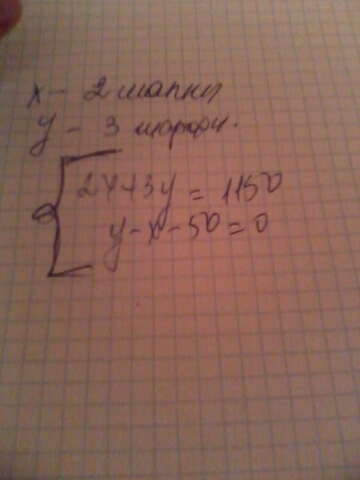 x - 2 шапки
y - 3 шарфы.
2x+3y = 1150
y-x-50=0